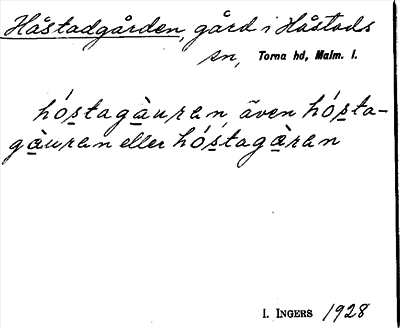 Håstadgården, gård i Håstads
sn, Torna hd, Malm. l.
hós̲tagà̲uran, även hós̲ta-
gà̲uran eller hós̲tagæ̲̀ran
I. INGERS 1928